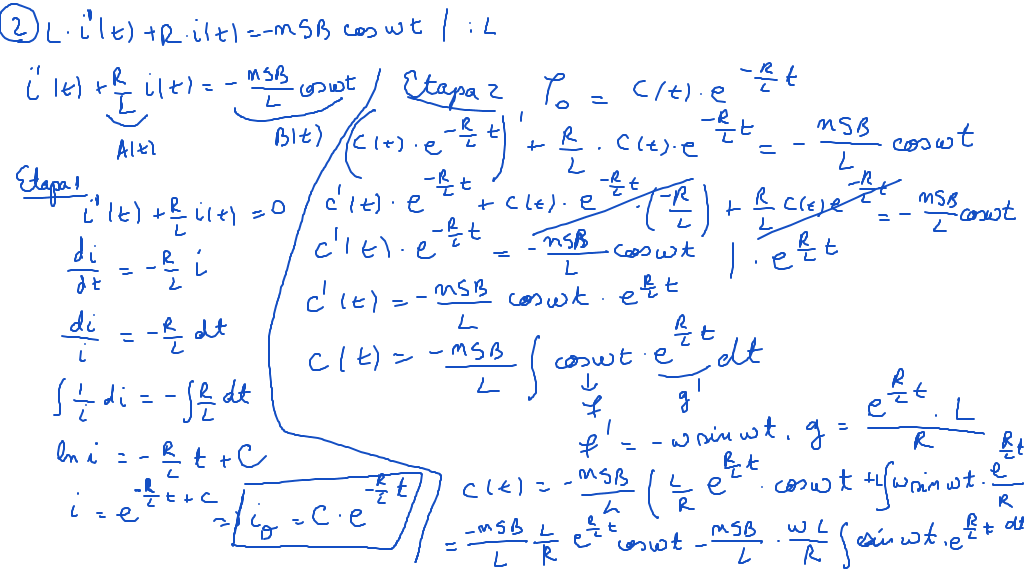 ② L · i'(t) + R · i(t) = -nSB cos wt | : L
i'(t) + R/L i(t) = - nSB/L cos wt
A(t) B(t)
Etapa 1
i'(t) + R/L i(t) = 0
di/dt = - R/L i
di/i = - R/L dt
∫ 1/i di = - ∫ R/L dt
ln i = - R/L t + C
i = e^(-R/L t + C) = i₀ = C · e^(-R/L t)
Etapa 2 φ₀ = C(t) · e^(-R/L t)
(C(t) · e^(-R/L t))' + R/L · C(t) · e^(-R/L t) = - nSB/L cos wt
C'(t) · e^(-R/L t) + C(t) · e^(-R/L t) · (-R/L) + R/L C(t) e^(-R/L t) = - nSB/L cos wt
C'(t) · e^(-R/L t) = - nSB/L cos wt | · e^(R/L t)
C'(t) = - nSB/L cos wt · e^(R/L t)
C(t) = - nSB/L ∫ cos wt · e^(R/L t) dt
↓
f g'
f' = -w sin wt, g = e^(R/L t) · L / R
C(t) = - nSB/L ( L/R e^(R/L t) · cos wt + L ∫ w sin wt · e^(R/L t) / R
= -nSB/L L/R e^(R/L t) cos wt - nSB/L · wL/R ∫ sin wt · e^(R/L t) dt